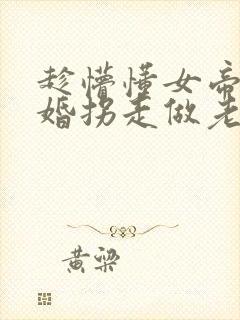 趁懵懂女帝
婚拐走做老
黄梁